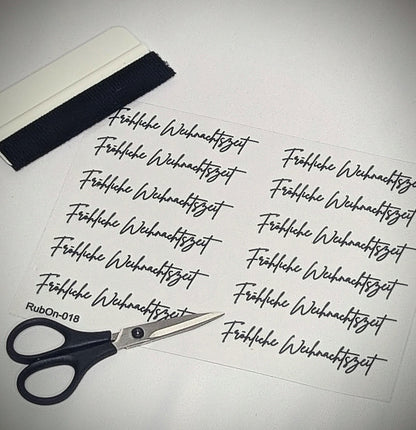 Fröhliche Weihnachtszeit
Fröhliche Weihnachtszeit
Fröhliche Weihnachtszeit
Fröhliche Weihnachtszeit
Fröhliche Weihnachtszeit
Fröhliche Weihnachtszeit
RubOn-018
Fröhliche Weihnachtszeit
Fröhliche Weihnachtszeit
Fröhliche Weihnachtszeit
Fröhliche Weihnachtszeit
Fröhliche Weihnachtszeit
Fröhliche Weihnachtszeit